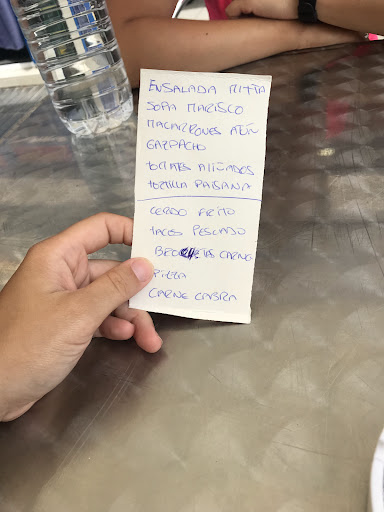 ENSALADA MIXTA
SOPA MARISCO
MACARRONES ATÚN
GAZPACHO
TOMATES ALIÑADOS
TORTILLA PAISANA
CERDO FRITO
TACOS PESCADO
CARNE
PIZZA
CARNE CABRA